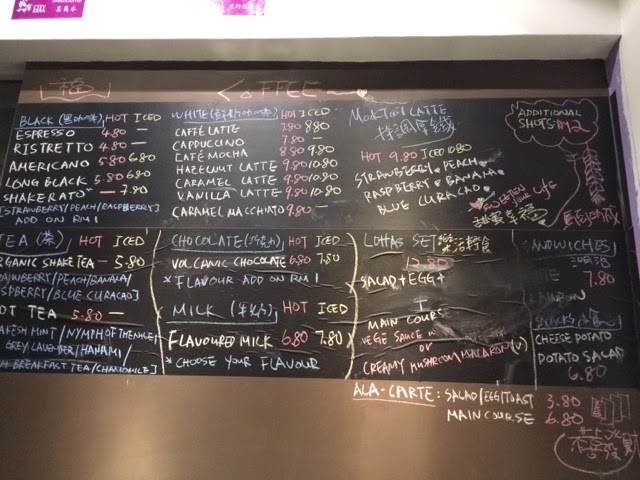 福
COFFEE
BLACK (黑咖啡) HOT ICED
ESPRESSO 4.80 —
RISTRETTO 4.80 —
AMERICANO 5.80 6.80
LONG BLACK 5.80 6.80
SHAKERATO — 7.80
[STRAWBERRY/PEACH/RASPBERRY]
ADD ON RM1
WHITE HOT ICED
CAFFÉ LATTE 7.80 8.80
CAPPUCCINO 7.80 —
CAFÉ MOCHA 8.80 9.80
HAZELNUT LATTE 9.80 10.80
CARAMEL LATTE 9.80 10.80
VANILLA LATTE 9.80 10.80
CARAMEL MACCHIATO 9.80 —
MOKTAIL LATTE
特調拿鐵
HOT 9.80 ICED 10.80
STRAWBERRY. PEACH.
RASPBERRY. BANANA.
BLUE CURACAO.
ADDITIONAL
SHOTS: RM2
SWEETEN
YOUR LIFE
甜蜜幸福
TEA (茶) HOT ICED
ORGANIC SHAKE TEA — 5.80
/PEACH/BANANA/
/BLUE CURACAO]
HOT TEA 5.80 —
MINT / NYMPH OF THE NILE /
GREY LAVENDER / HANAMI /
BREAKFAST TEA / CHAMOMILE]
CHOCOLATE (巧克力) HOT ICED
VOLCANIC CHOCOLATE 6.80 7.80
* FLAVOUR ADD ON RM1
MILK (牛奶) HOT ICED
FLAVOURED MILK 6.80 7.80
* CHOOSE YOUR FLAVOUR
LOHAS SET 樂活輕食
12.80
SALAD + EGG +
+
MAIN COURSE
VEGIE SAUCE
OR
CREAMY MUSHROOM MACARONI (V)
SANDWICHES
7.80
SNACKS
CHEESE POTATO
POTATO SALAD
6.80
ALA-CARTE: SALAD/EGG/TOAST 3.80
MAIN COURSE 6.80